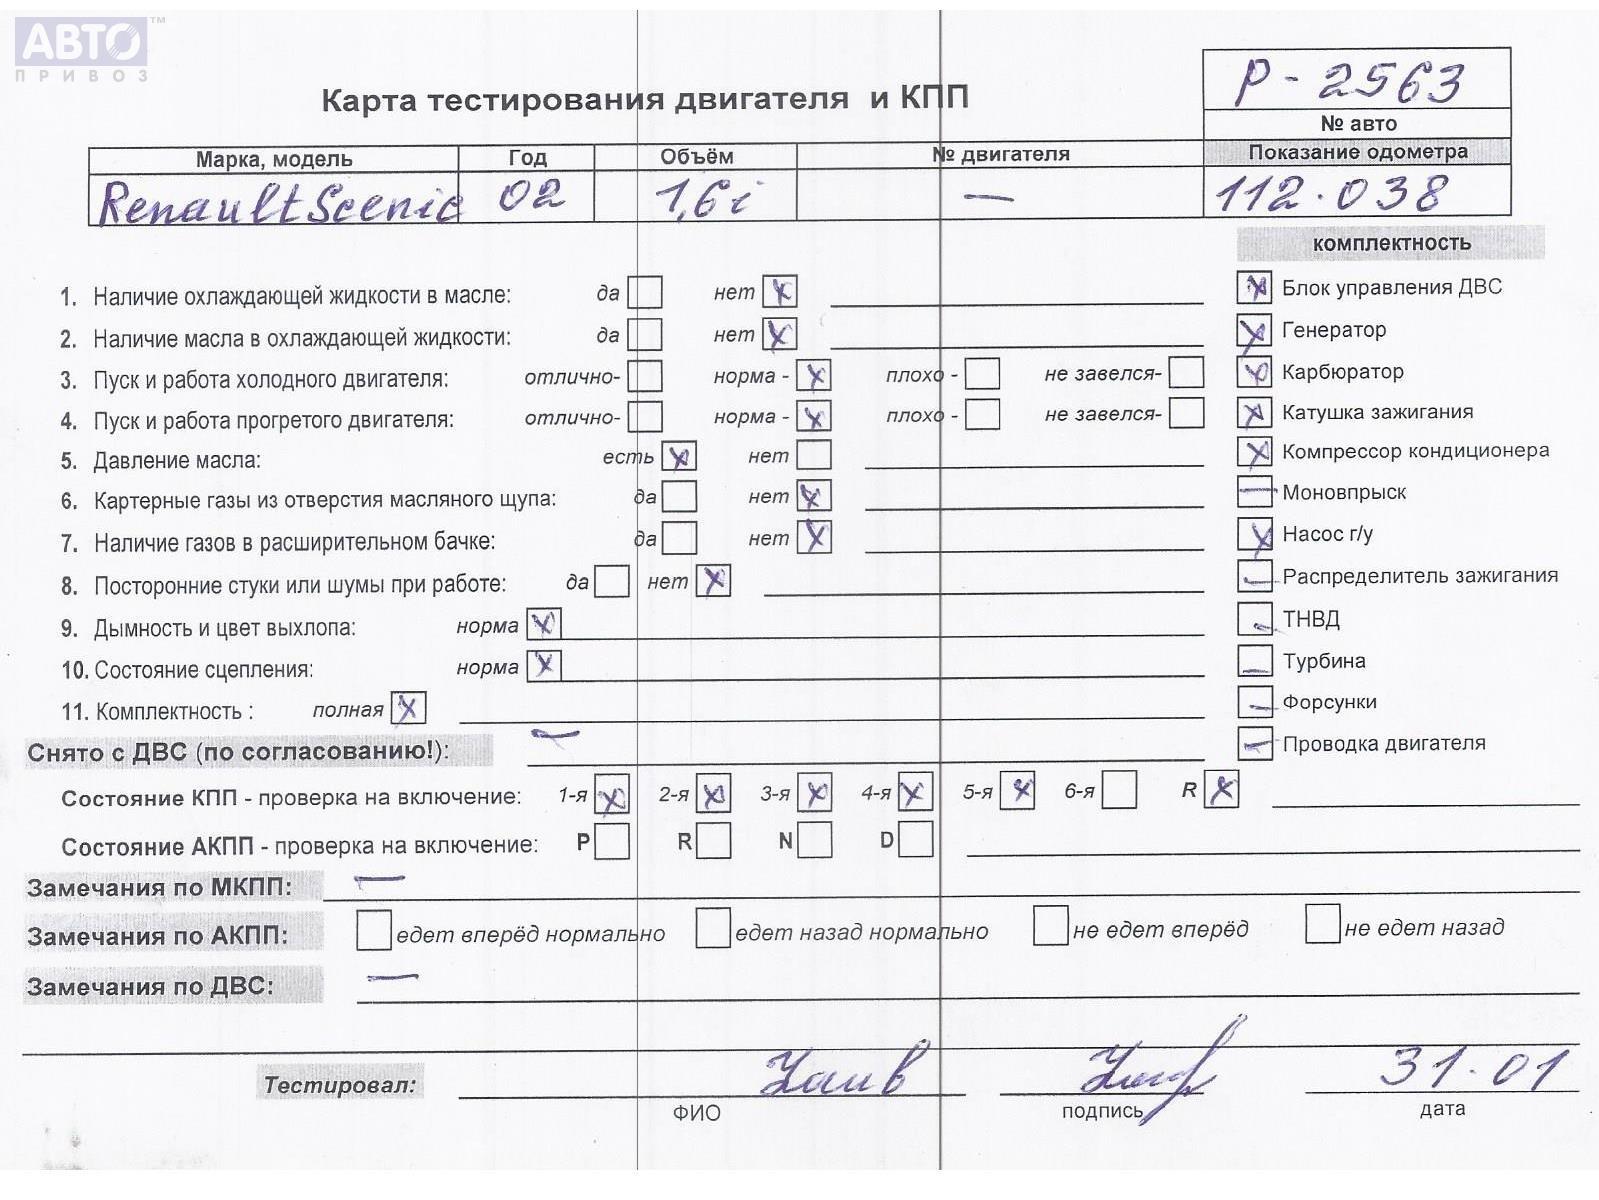 АВТО™
ПРИВОЗ
Карта тестирования двигателя и КПП
Р - 2563
№ авто
Марка, модель Год Объём № двигателя Показание одометра
Renault Scenic 02 1,6i — 112.038
комплектность
1. Наличие охлаждающей жидкости в масле: да нет x
Блок управления ДВС
2. Наличие масла в охлаждающей жидкости: да нет x
Генератор
3. Пуск и работа холодного двигателя: отлично- норма - x плохо - не завелся-
Карбюратор
4. Пуск и работа прогретого двигателя: отлично- норма - x плохо - не завелся-
Катушка зажигания
5. Давление масла: есть x нет
Компрессор кондиционера
6. Картерные газы из отверстия масляного щупа: да нет x
Моновпрыск
7. Наличие газов в расширительном бачке: да нет x
Насос г/у
8. Посторонние стуки или шумы при работе: да нет x
Распределитель зажигания
9. Дымность и цвет выхлопа: норма x
ТНВД
10. Состояние сцепления: норма x
Турбина
11. Комплектность : полная x
Форсунки
Снято с ДВС (по согласованию!): —
Проводка двигателя
Состояние КПП - проверка на включение: 1-я x 2-я x 3-я x 4-я x 5-я x 6-я R x
Состояние АКПП - проверка на включение: P R N D
Замечания по МКПП: —
Замечания по АКПП: едет вперёд нормально едет назад нормально не едет вперёд не едет назад
Замечания по ДВС: —
Тестировал: 31.01
ФИО подпись дата